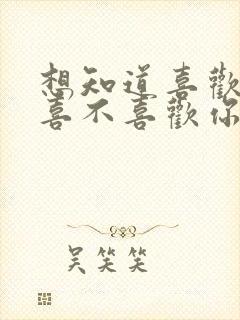 想知道喜歡
喜不喜歡你
吴笑笑